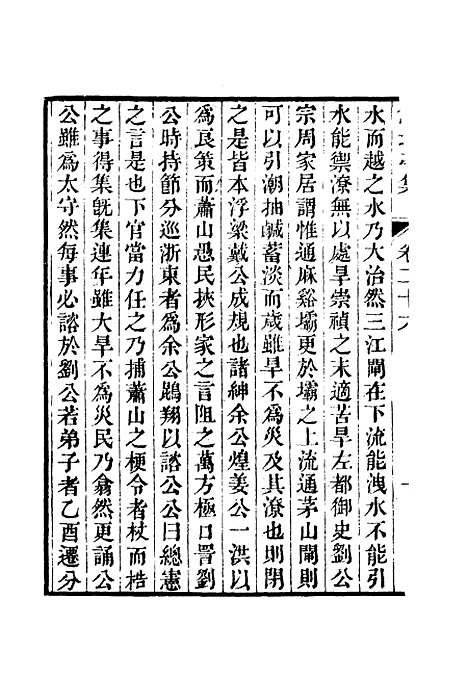 水而越之水乃大治然三江閘在下流能洩水不能引
水能禦潦無以處旱崇禎之末適苦旱左都御史劉公
宗周家居謂惟通麻谿壩更於壩之上流通茅山閘則
可以引潮抽鹹蓄淡而歲雖旱不爲災及其潦也則閉
之是皆本浮梁戴公成規也諸紳余公煌姜公一洪以
爲良策而蕭山愚民挾形家之言阻之萬方極口詈劉
公時持節分巡浙東者爲余公鵾翔以諮公公曰總憲
之言是也下官當力任之乃捕蕭山之梗令者杖而梏
之事得集旣集連年雖大旱不爲災民乃翕然更誦公
公雖爲太守然每事必諮於劉公若弟子者乙酉遷分